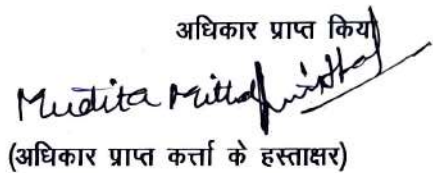 अधिकार प्राप्त किया
Mudita Mittal
(अधिकार प्राप्त कर्त्ता के हस्ताक्षर)